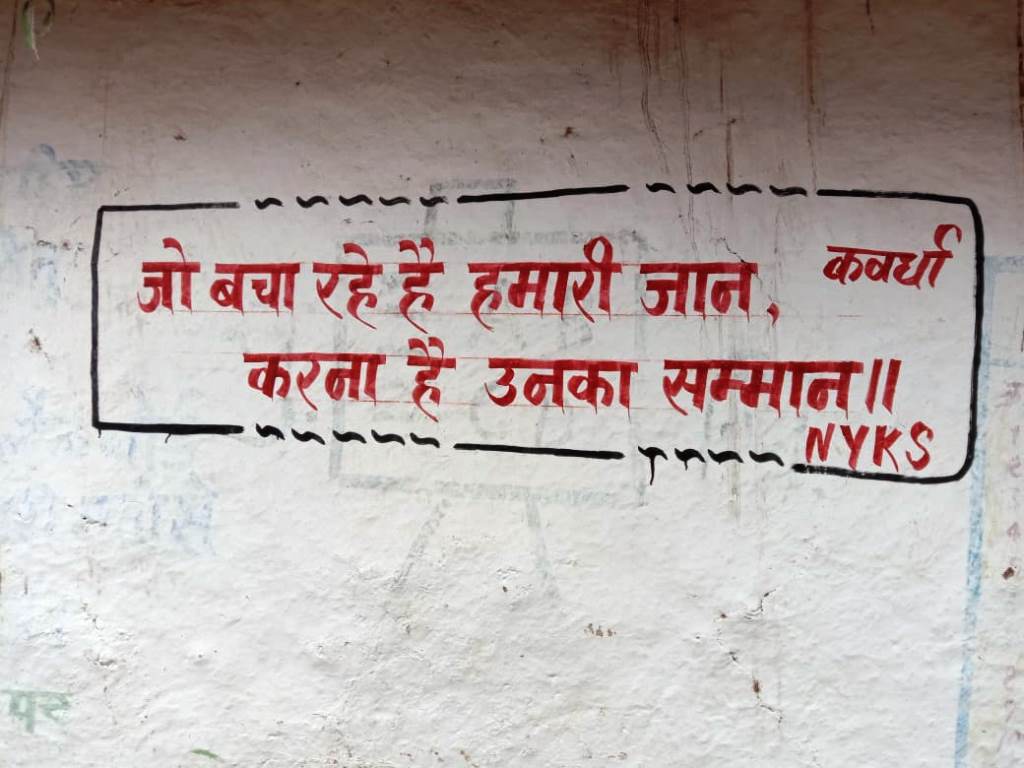 जो बचा रहे है हमारी जान,
कवर्धा
करना है उनका सम्मान॥
NYKS
पर